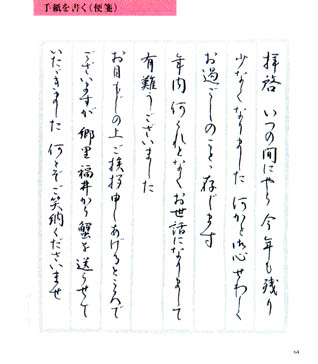 手紙を書く(便箋)
拝啓 いつの間にやら 今年も残り
少なくなりました 何かと御心せわしく
お過ごしのことゝ存じます
年内 何くれとなくお世話になりまして
有難うございました
お目もじの上ご挨拶申しあげるところで
ございますが 郷里福井から蟹を送らせて
いたゞきました 何とぞご笑納くださいませ
64